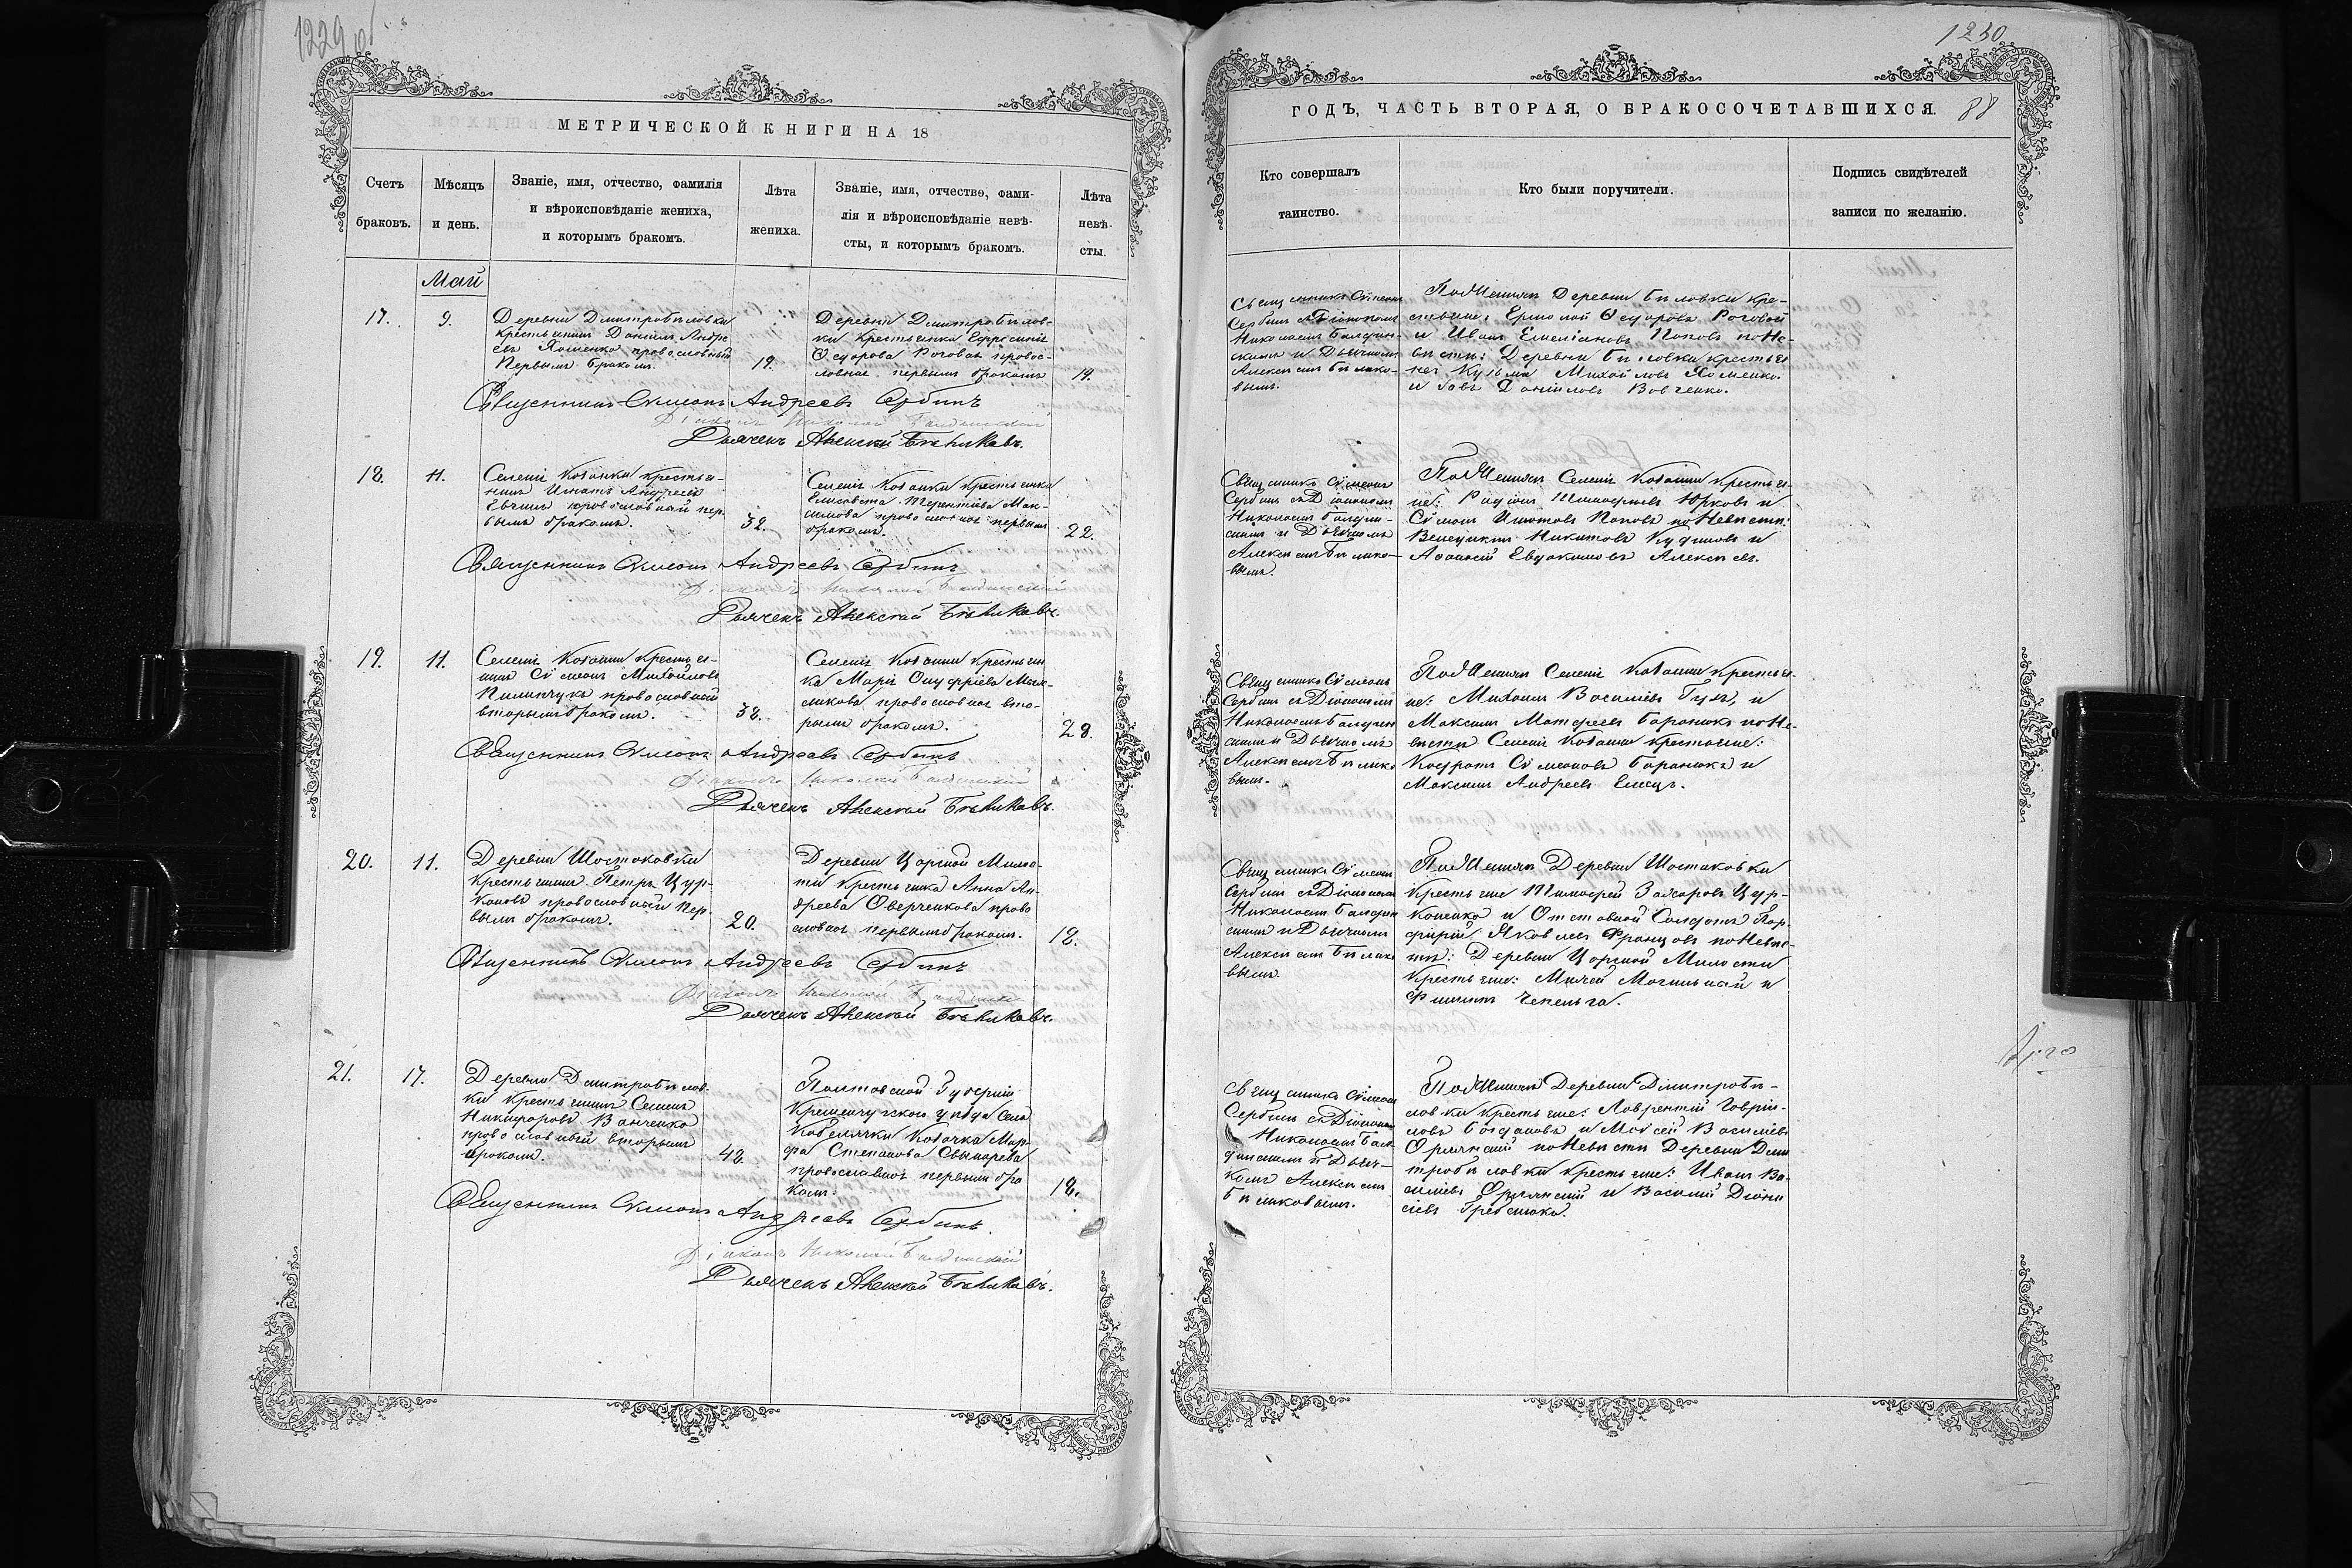 1229 об
МЕТРИЧЕСКОЙ КНИГИ НА 18
Счетъ браковъ.
Мѣсяцъ и день.
Званіе, имя, отчество, фамилія
и вѣроисповѣданіе жениха,
и которымъ бракомъ.
Лѣта жениха.
Званіе, имя, отчество, фами-
лія и вѣроисповѣданіе невѣ-
сты, и которымъ бракомъ.
Лѣта невѣ-
сты.
Май
17. 9.
Деревни Дмитробѣловки
крестьянинъ Даніилъ Андре
евъ Хоменко православный
первымъ бракомъ.
19.
Деревни Дмитробѣлов-
ки крестьянка Ефросинія
Ѳедорова Роговая правос-
лавная первымъ бракомъ
19.
Священникъ Симеонъ Андреевъ Сербинъ
Діаконъ Николай
Дьячекъ Алексѣй Бѣликовъ.
18. 11.
Селенія Козанки крестья-
нинъ Игнатъ Андреевъ
православный пер
вымъ бракомъ.
32.
Селенія Козанки крестьянка
Елисавета Терентіева Мак-
симова православная первымъ
бракомъ.
22.
Священникъ Симеонъ Андреевъ Сербинъ
Діаконъ Николай
Дьячекъ Алексѣй Бѣликовъ.
19. 11.
Селенія Козанки крестья-
нинъ Сѵмеонъ Михайловъ
Пилипчукъ православный
вторымъ бракомъ.
38.
Селенія Козанки крестьян
ка Марія Онуфріева
православная вто-
рымъ бракомъ.
28.
Священникъ Симеонъ Андреевъ Сербинъ
Діаконъ Николай
Дьячекъ Алексѣй Бѣликовъ.
20. 11.
Деревни Шостаковки
крестьянинъ Петръ Цур-
кановъ православный пер-
вымъ бракомъ.
20.
Деревни Царской Мило-
сти крестьянка Анна Ан-
дреева Оверченкова право
славная первымъ бракомъ.
18.
Священникъ Симеонъ Андреевъ Сербинъ
Діаконъ Николай
Дьячекъ Алексѣй Бѣликовъ.
21. 17.
Деревни Дмитробѣлов-
ки крестьянинъ Семенъ
Никифоровъ Ванченко
православный вторымъ
бракомъ.
42.
Полтавской Губерніи
Кременчугскаго уѣзда Села
Кобелячки Козачка Мар-
фа Степанова
православная первымъ бра
комъ.
18.
Священникъ Симеонъ Андреевъ Сербинъ.
Діаконъ Николай
Дьячекъ Алексѣй Бѣликовъ.
1230
88
ГОДЪ, ЧАСТЬ ВТОРАЯ, О БРАКОСОЧЕТАВШИХСЯ.
Кто совершалъ
таинство.
Кто были поручители.
Подпись свидѣтелей
записи по желанію.
Священникъ Сѵмеонъ
Сербинъ съ Діакономъ
Николаемъ
и Дьячкомъ
Алексѣемъ Бѣлико-
вымъ.
По Женихѣ Деревни Бѣловки кре-
стьяне: Ермолай Ѳедоровъ Роговой
и Иванъ Емеліановъ Поповъ по Не-
вѣстѣ: Деревни Бѣловки крестья
не: Кузьма Михайловъ Хоменко
и Іовъ Даніиловъ Вовченко.
Священникъ Сѵмеонъ
Сербинъ съ Діакономъ
Николаемъ
и Дьячкомъ
Алексѣемъ Бѣлико-
вымъ.
По Женихѣ Селенія Козанки крестья-
не: Родіонъ Тимофеевъ Юрковъ и
Сѵмеонъ Игнатовъ Поповъ по Невѣстѣ:
Никитовъ и
Аѳанасій Евдокимовъ Алексѣевъ.
Священникъ Сѵмеонъ
Сербинъ съ Діакономъ
Николаемъ
и Дьячкомъ
Алексѣемъ Бѣлико
вымъ.
По Женихѣ Селенія Козанки крестья-
не: Михаилъ Василіевъ Гузь, и
Максимъ Матфеевъ Баранюкъ по Не-
вѣстѣ Селенія Козанки крестьяне:
Кондратъ Сѵмеоновъ Баранюкъ и
Максимъ Андреевъ
Священникъ Сѵмеонъ
Сербинъ съ Діакономъ
Николаемъ
и Дьячкомъ
Алексѣемъ Бѣлико
вымъ.
По Женихѣ Деревни Шостаковки
крестьяне Тимофей Захаровъ Цур-
каненко и Отставной Солдатъ Пор-
фирій Яковлевъ Францовъ по Невѣ-
стѣ: Деревни Царской Милости
крестьяне: Могильный и
Филиппъ Чепельга.
Священникъ Сѵмеонъ
Сербинъ съ Діакономъ
Николаемъ
и Дьяч-
комъ Алексѣемъ
Бѣликовымъ.
По Женихѣ Деревни Дмитробѣ-
ловки крестьяне: Лаврентій Гавріи-
ловъ Богдановъ и Моѵсей Василіевъ
Орлянскій по Невѣстѣ Деревни Дми
тробѣловки крестьяне: Иванъ Ва-
силіевъ Орлянскій и Василій Діони
сіевъ Гребенюкъ.